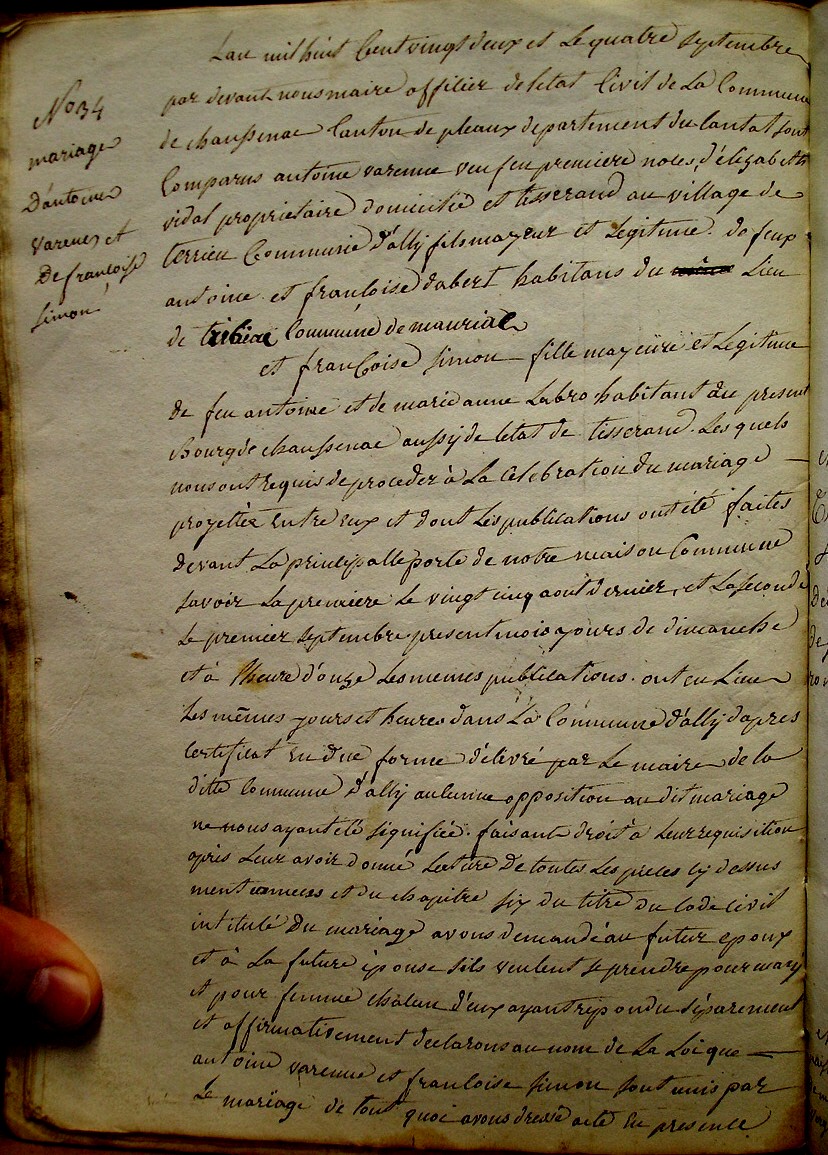 No 34
mariage
D'antoine
varene, et
De francoise
simon
Lan mil huit Cent vingt deux et Le quatre septembre
par devant nous maire officier de letat Civil de La Commune
de chaussenac Canton de pleaux departement du Cantal sont
Comparus antoine varenne veuf en premiere noces, d'elizabeth
vidal proprietaire domicilié et tisserand au village de
terrieu Commune d'ally fils mayeur et Legitime de feux
antoine et francoise dabert habitans du Lieu
de Commune de mauriac
et francoise simon fille mayeure et Legitime
de feu antoine et de marie anne Labro habitant du present
Bourg de chaussenac aussy de letat de tisserand. Les quels
nous ont requis de proceder à La Celebration du mariage
proyettée entre eux et dont Les publications ont été faites
devant La principalle porte de notre maison Commune
savoir La premiere Le vingt cinq aout dernier, et La seconde
Le premier septembre present mois jours de dimanche
et à l'heure d'onze Les memes publications ont eu Lieu
Les mêmes jours et heures dans La Commune d'ally dapres
Certificat en due forme délivré par Le maire de la
ditte Commune d'ally aucunne opposition au dit mariage
ne nous ayant été signifiée. faisant droit à Leur requisition
après Leur avoir donné Lecture de toutes Les pieces cy dessus
mentionnees et du chapitre six du titre du Code Civil
intitulé Du mariage avons demandé au futur epoux
et à La future épouse s'ils veulent se prendre pour mary
et pour femme chacun d'eux ayant repondu séparement
et affirmativement declarons au nom de La Loi que
antoine varenne et francoise simon sont unis par
Le mariage de tout quoi avons dressé acte En presence